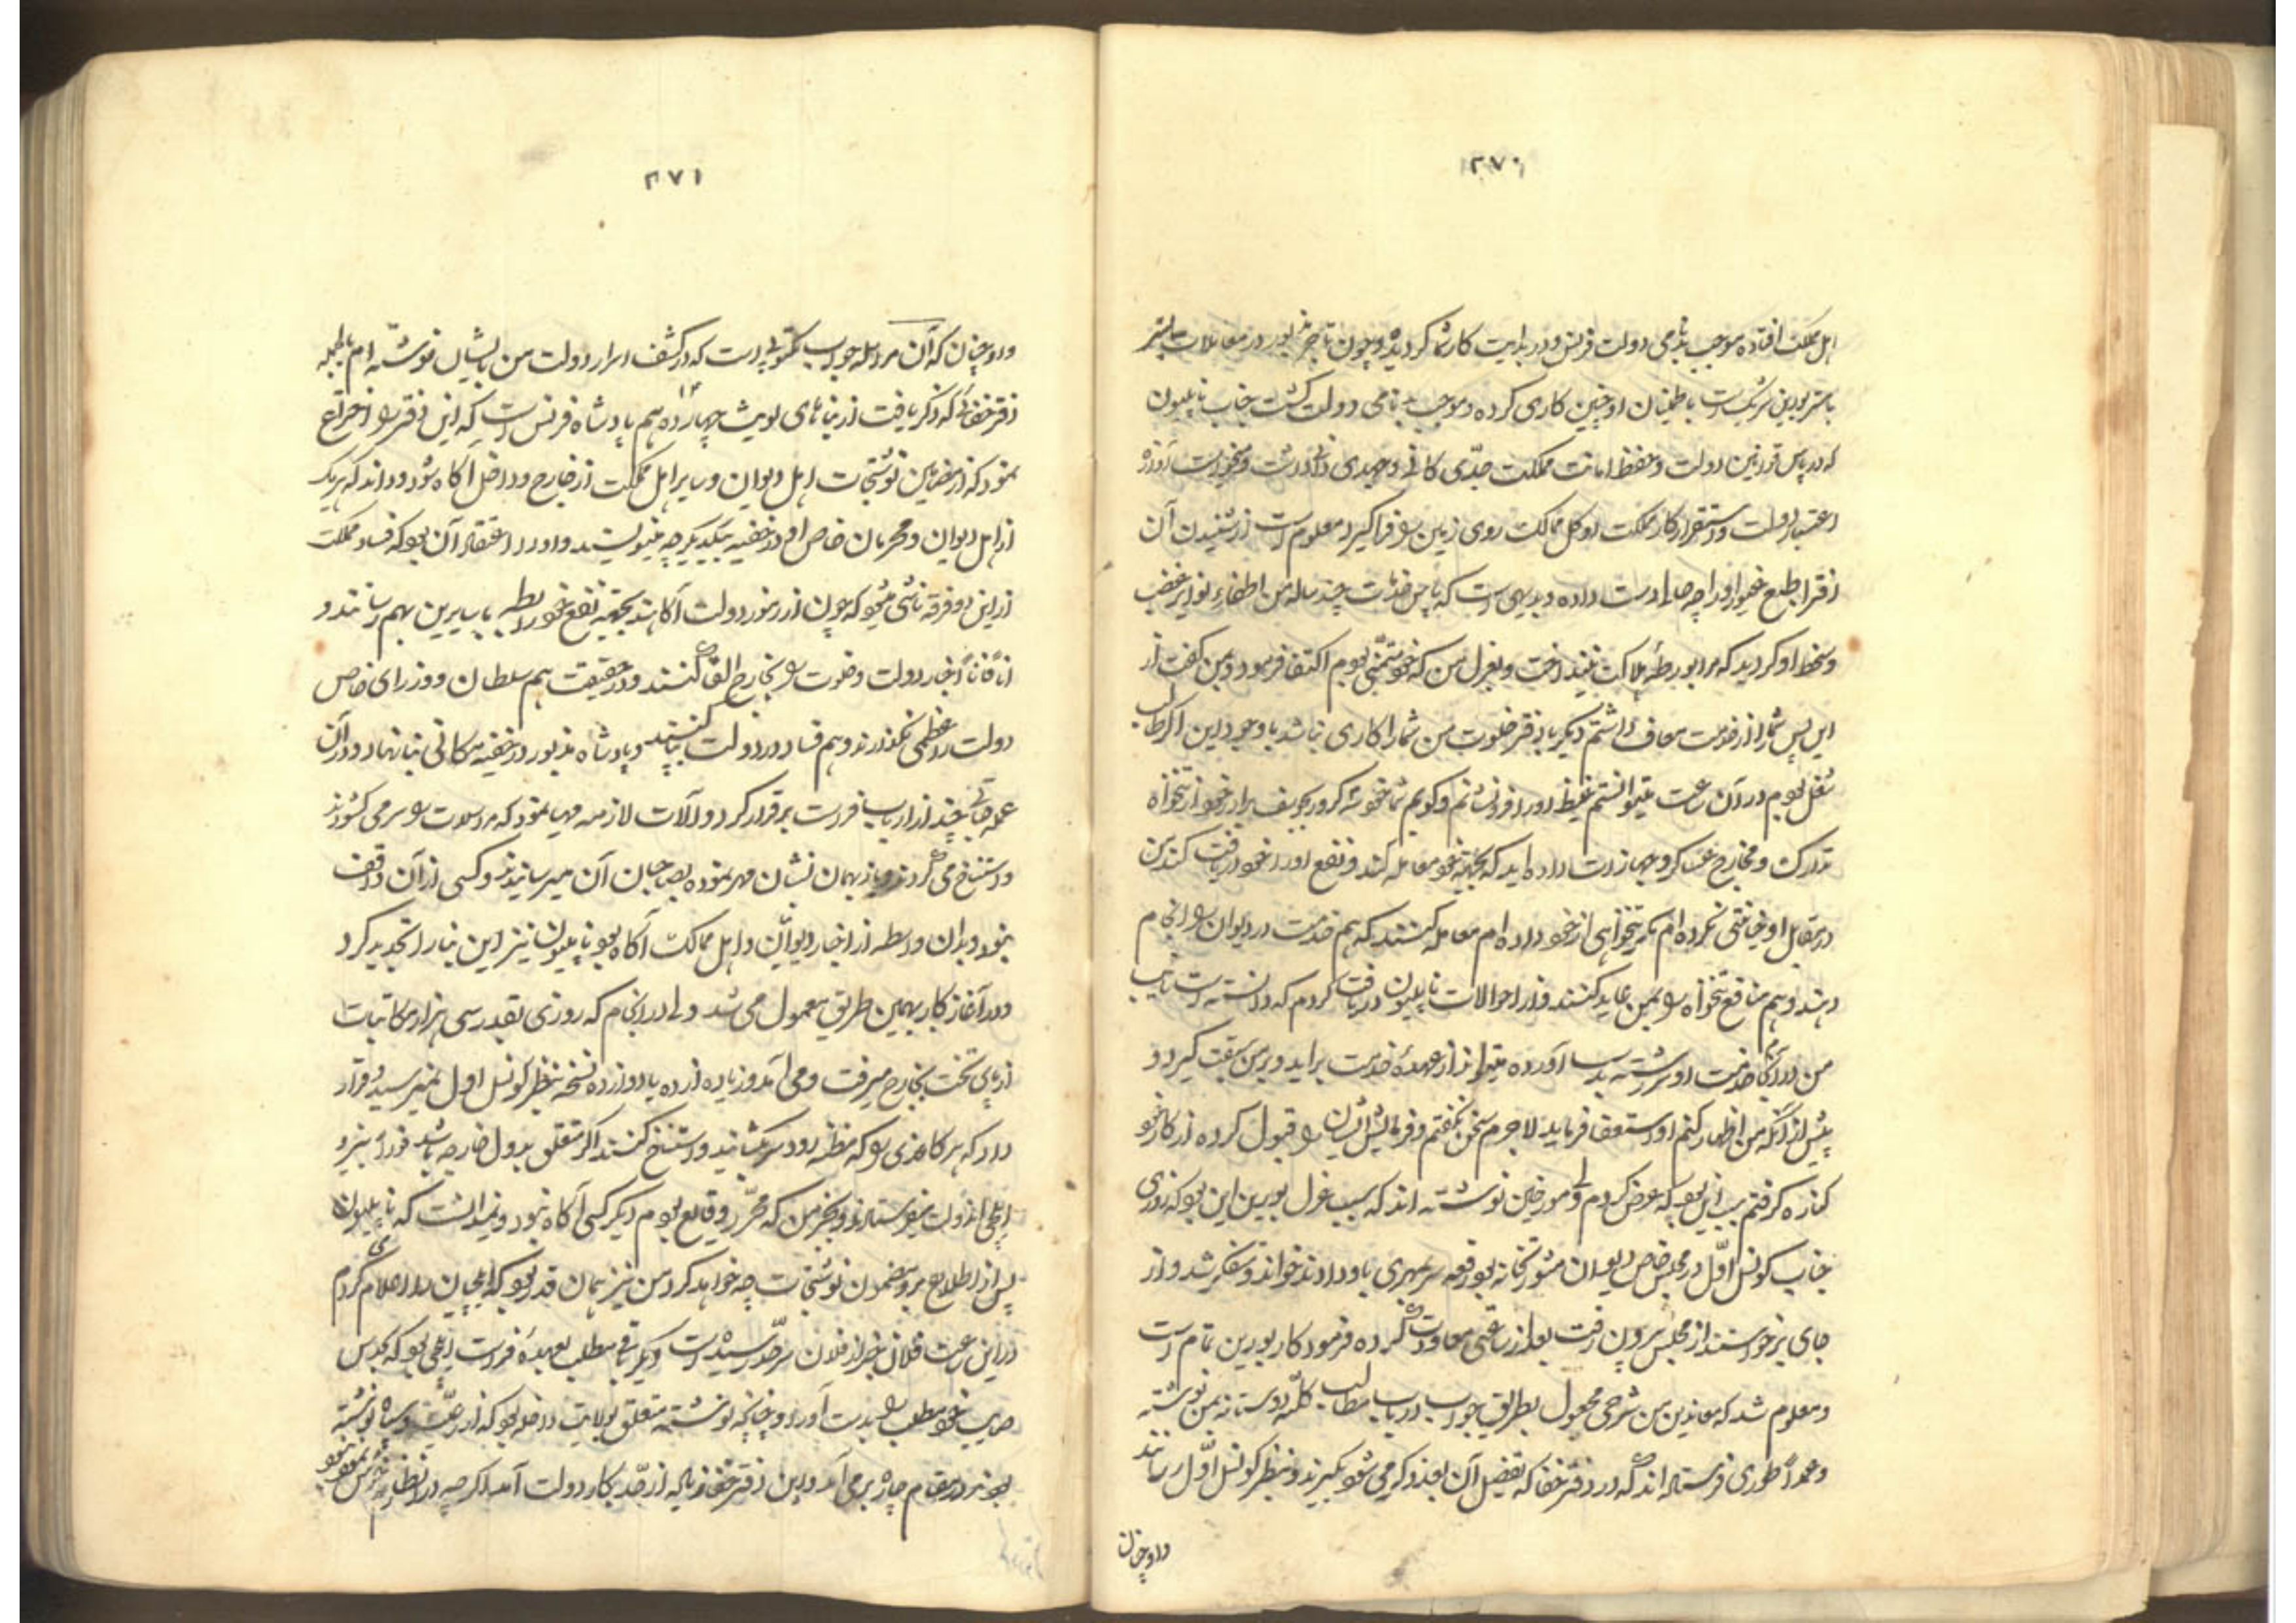 ٢٧٠
اهل مملکت افتاده موجب بدنامی دولت فرنس و در بدایت کار شما کردیده و چون تاجر مزبور در معاملات بیشتر
با مستر بورین شریکست باطمینان او چنین کاری کرده و موجب بدنامی دولت کشت جناب ناپلیون
که در پاس قوانین دولت و حفظ امانت مملکت جدّی کافی و جهدی وافی داشت و میخواست آوازه
اعتبار دولت و استقرار کار مملکت او کل ممالک روی زمین را فراکیرد معلوم است از شنیدن آن
از قرا طلع غیر او را چه حالت دست داده و بدیهی است که پاس خدمات چند ساله من اطفاء نوایر غضب
و سخط او کردید که مرا بورطهٔ هلاکت نینداخت و بعزل من که خود متمنّی بودم اکتفا فرمود و بمن کفت از
این پس شما را از خدمت معاف داشتم دیکر با دفتر خلوت من شما را کاری نباشد با وجود این اکر طالب
شغل بودم در آن ساعت میتوانستم غیظ او را فرونشانم و کویم شما خود شه کرور بجوزیف برادر خود از تنخواه
تدارک و مخارج عساکر و جهازات داده اید که بجهة خود معامله کند و نفع او را خود دریافت کند من
در مقابل او خیانتی نکرده ام مکر تنخواهی از خود داده ام معامله کنند که هم خدمت در دیوان را انجام
دهند و هم منافع تنخواه را بمن عاید کنند و از احوالات ناپلیون دریافت کردم که دانسته است نایب
من در انجام خدمت او سررشته بدست آورده میتواند از عهدهٔ خدمت براید و بر من سبقت کیرد و
پیش از آنکه من اظهار کنم او استعفا فرماید لاجرم سخن نکفتم و فرمایش ایشان را قبول کرده از کار خود
کناره کرفتم سبب این بود که عرض کردم ولی مورخین نوشته اند که سبب عزل بورین این بود که روزی
جناب کونسل اوّل در مجلس خاص دیوان مشورتخانه بود رقعه سربمهری باو دادند خواند و متفکر شد و از
جای برخواستند از مجلس بیرون رفت بعد از ساعتی معاودت کرده فرمود کار بورین تمام است
و معلوم شد که معاندین من شرحی مجعول بطریق جواب در باب مطالب کلّیه دوستانه بمن نوشته
و عمداً طوری فرستاده اند که در دفتر خفا که تفصیل آن بعد ذکر می شود بکیرند و بنظر کونسل اوّل رسانند
و او چنان
٢٧١
و او چنان که آن مراسله جواب مکتوبیست که در کشف اسرار دولت من بایشان نوشته ام بالجمله
دفتر خفائی که ذکر یافت از بناهای لویش چهارده هم پادشاه فرنس است که این دفتر را اختراع
نمود که از مضامین نوشتجات اهل دیوان و سایر اهل مملکت از خارج و داخل آکاه شود و داند که هریک
از اهل دیوان و محرمان خاص او در خفیه بیکدیکر چه مینویسند و او را اعتقاد آن بود که فساد مملکت
از این دو فرقه ناشی میشود که چون از رموز دولت آکاهند بجهة نفع خود رابطه با سایرین بهم رسانند و
آناً فاناً اخبار دولت و خلوت را بخارج القا کنند و در حقیقت هم سلطان و وزرای خاص
دولت را عظمی نکذارند و هم فساد در دولت بپا کنند و پادشاه مذبور در خفیه مکانی بنا نهاد و در آن
عمله جاتی چند از ارباب فراست برقرار کرد و آلات لازمه مهیا نمود که مراسلات را سر می کشودند
و استنساخ می کردند و باز بهمان نشان مهر نموده بصاحبان آن میرسانیدند و کسی از آن واقف
نبود و بدان واسطه از اخبار دیوانیان و اهل ممالک آکاه بود ناپلیون نیز این بنا را تجدید کرد
و در آغاز کار بهمین طریق معمول می شد ولی در انجام که روزی بقدر سی هزار مکاتبات
از پای تخت بخارج میرفت و می آمد و زیاده از ده یا دوازده نسخه بنظر کونسل اول نمیرسید و قرار
داد که هر کاغذی را که مظنه رود سر کشانید و استنساخ کنند اکر متعلق بدول خارجه باشد فوراً بنزد
ایلچی آندولت میفرستادند و بجز من که محرّر وقایع بودم دیکر کسی آکاه نبود و نمیدانست که ناپلیون
پس از اطلاع بر مضمون نوشتجات چه خواهد کرد من نیز همان قدر بود که ایلچیان را اعلام می کردم
در این ساعت فلان خبر از فلان سرحدّ رسیده است دیکر باقی مطلب بعهدهٔ فراست ایلچی بود که بحدس
صایب خود مطلب را بدست آورد و چنانکه نوشته متعلق بولایت داخله بود که از رعیّت و سپاه نوشته
بودند در مقام چاره برمی آمد و این دفتر خفا زیاده از حدّ بکار دولت آمد اکرچه در انظار